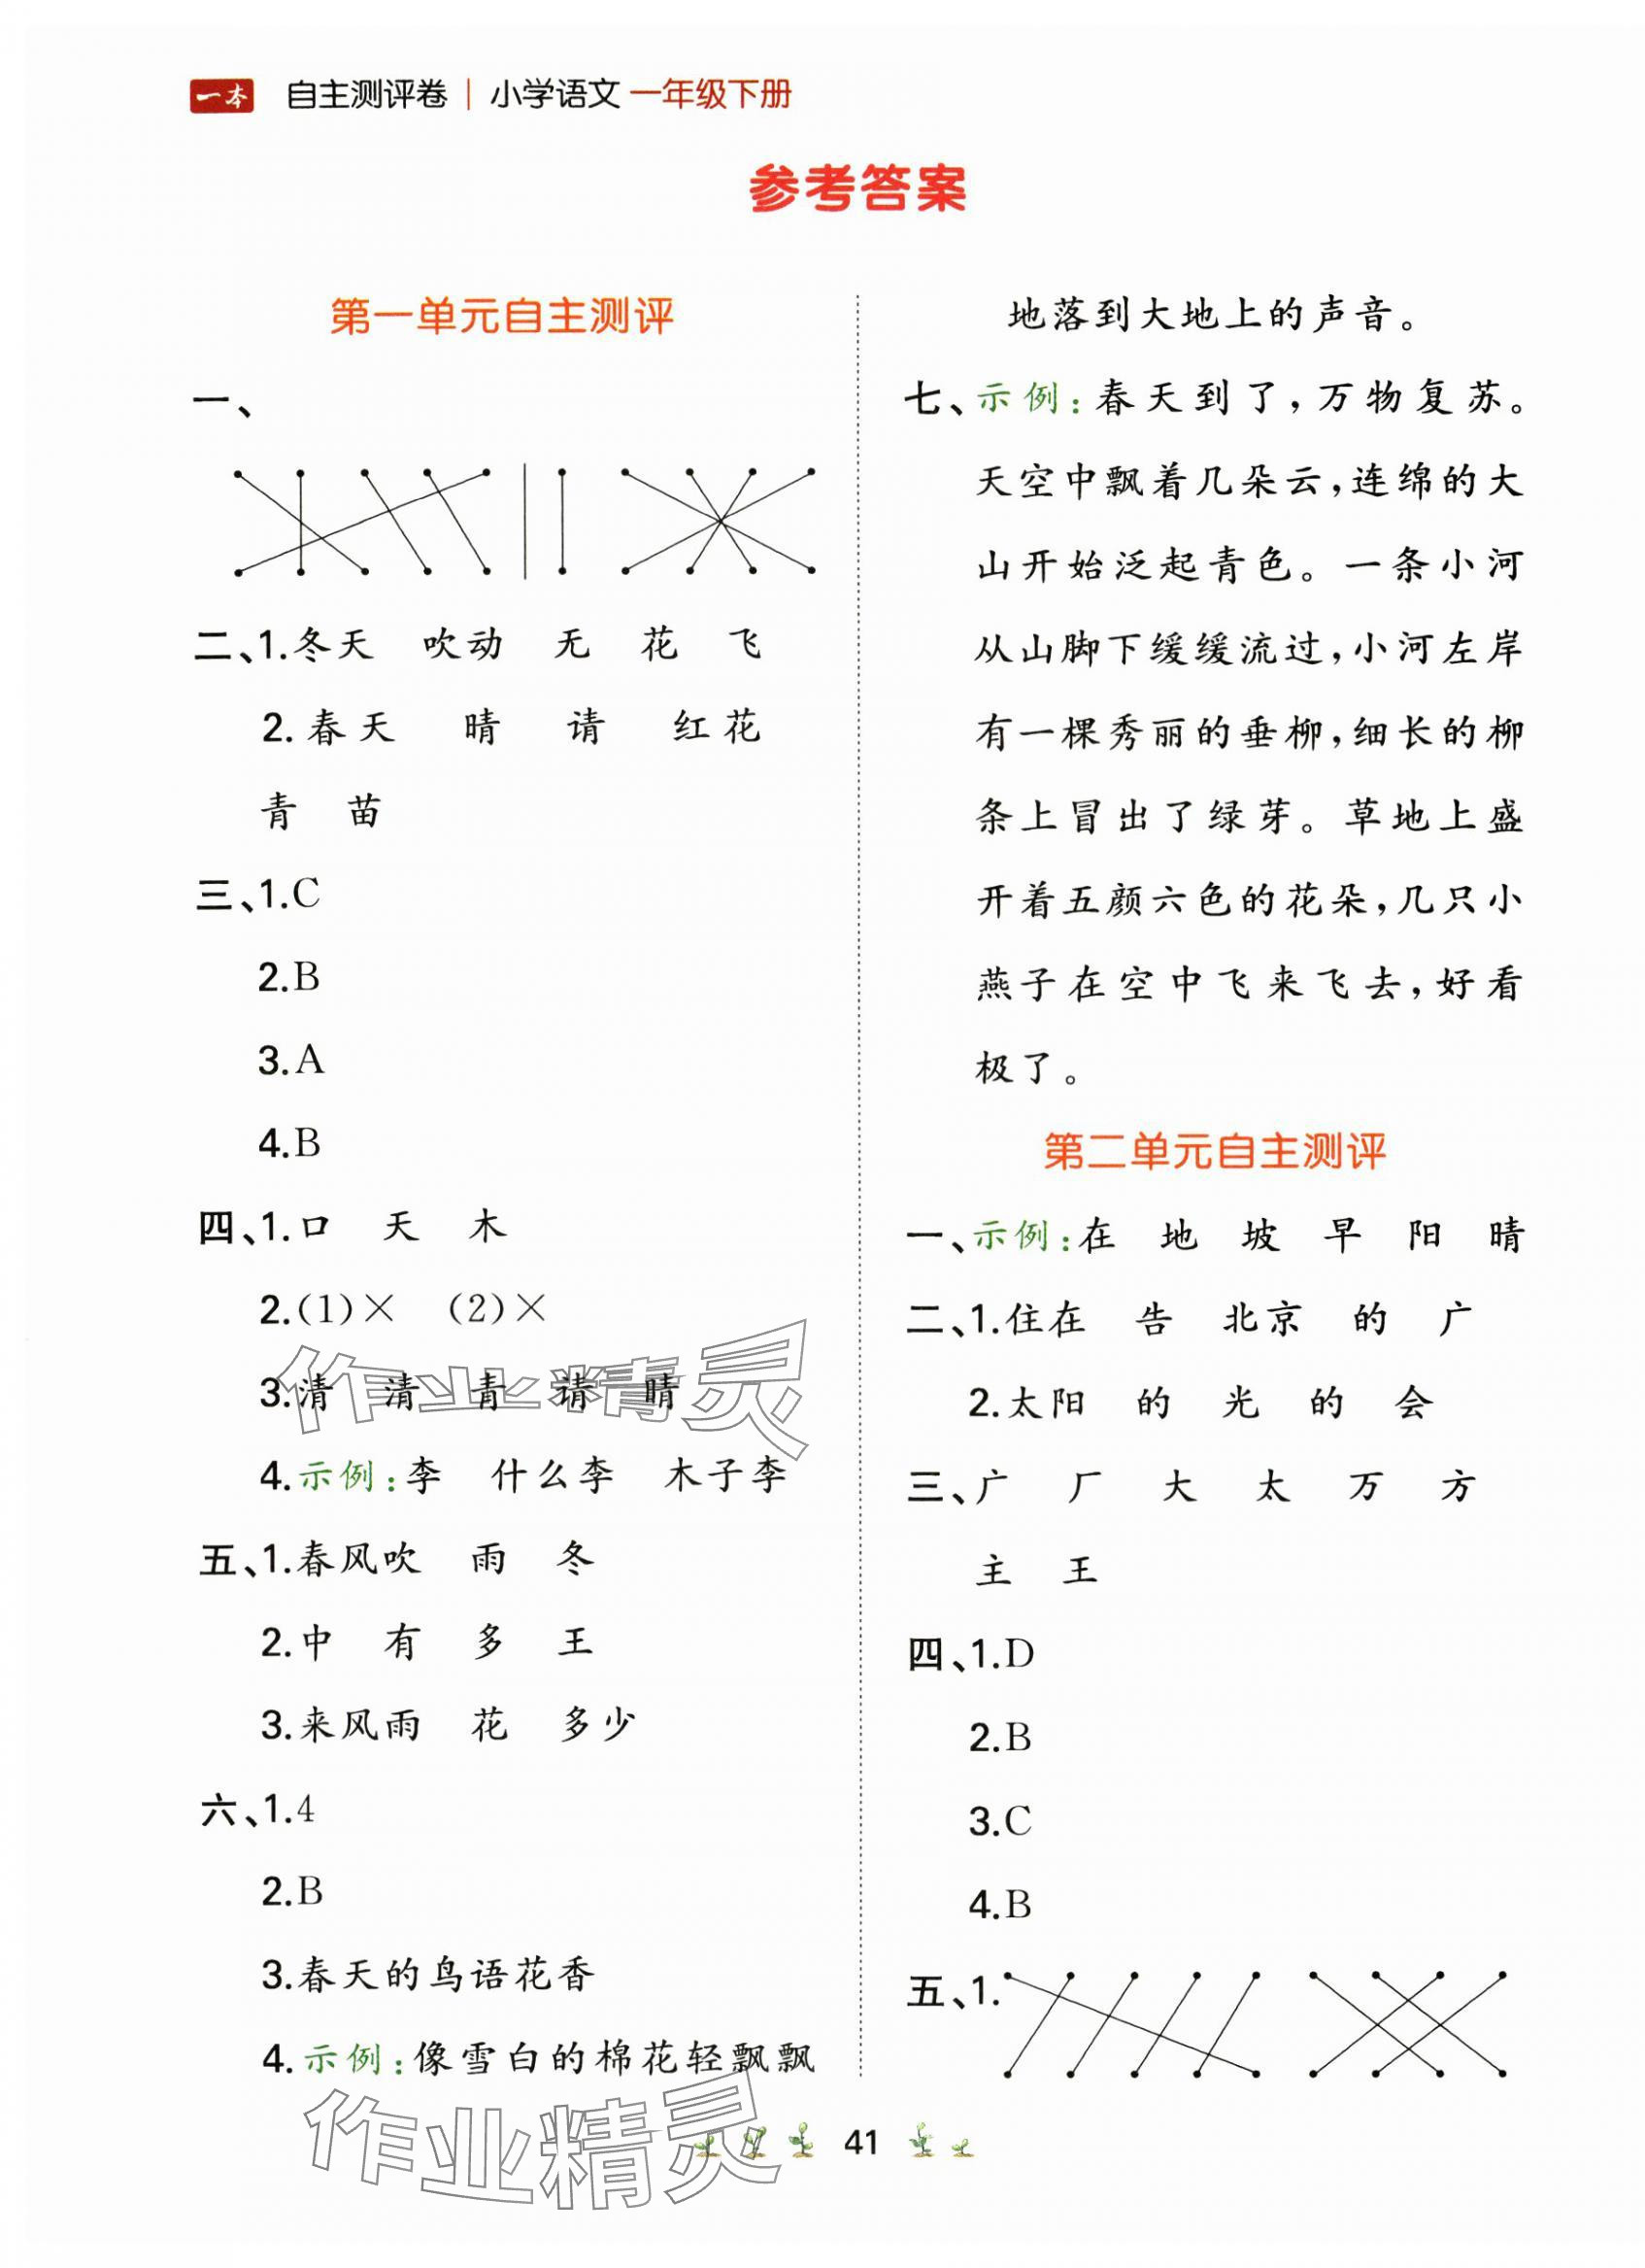 一本 自主测评卷 | 小学语文 一年级下册
参考答案
第一单元自主测评
一、
二、1.冬天 吹动 无 花 飞
2.春天 晴 请 红花
青 苗
三、1.C
2.B
3.A
4.B
四、1.口 天 木
2.(1)× (2)×
3.清 清 青 请 晴
4.示例:李 什么李 木子李
五、1.春风吹 雨 冬
2.中 有 多 王
3.来风雨 花 多少
六、1.4
2.B
3.春天的鸟语花香
4.示例:像雪白的棉花轻飘飘
地落到大地上的声音。
七、示例:春天到了,万物复苏。
天空中飘着几朵云,连绵的大
山开始泛起青色。一条小河
从山脚下缓缓流过,小河左岸
有一棵秀丽的垂柳,细长的柳
条上冒出了绿芽。草地上盛
开着五颜六色的花朵,几只小
燕子在空中飞来飞去,好看
极了。
第二单元自主测评
一、示例:在 地 坡 早 阳 晴
二、1.住在 告 北京 的 广
2.太阳 的 光 的 会
三、广 厂 大 太 万 方
主 王
四、1.D
2.B
3.C
4.B
五、1.
作业精灵
作业精灵
41